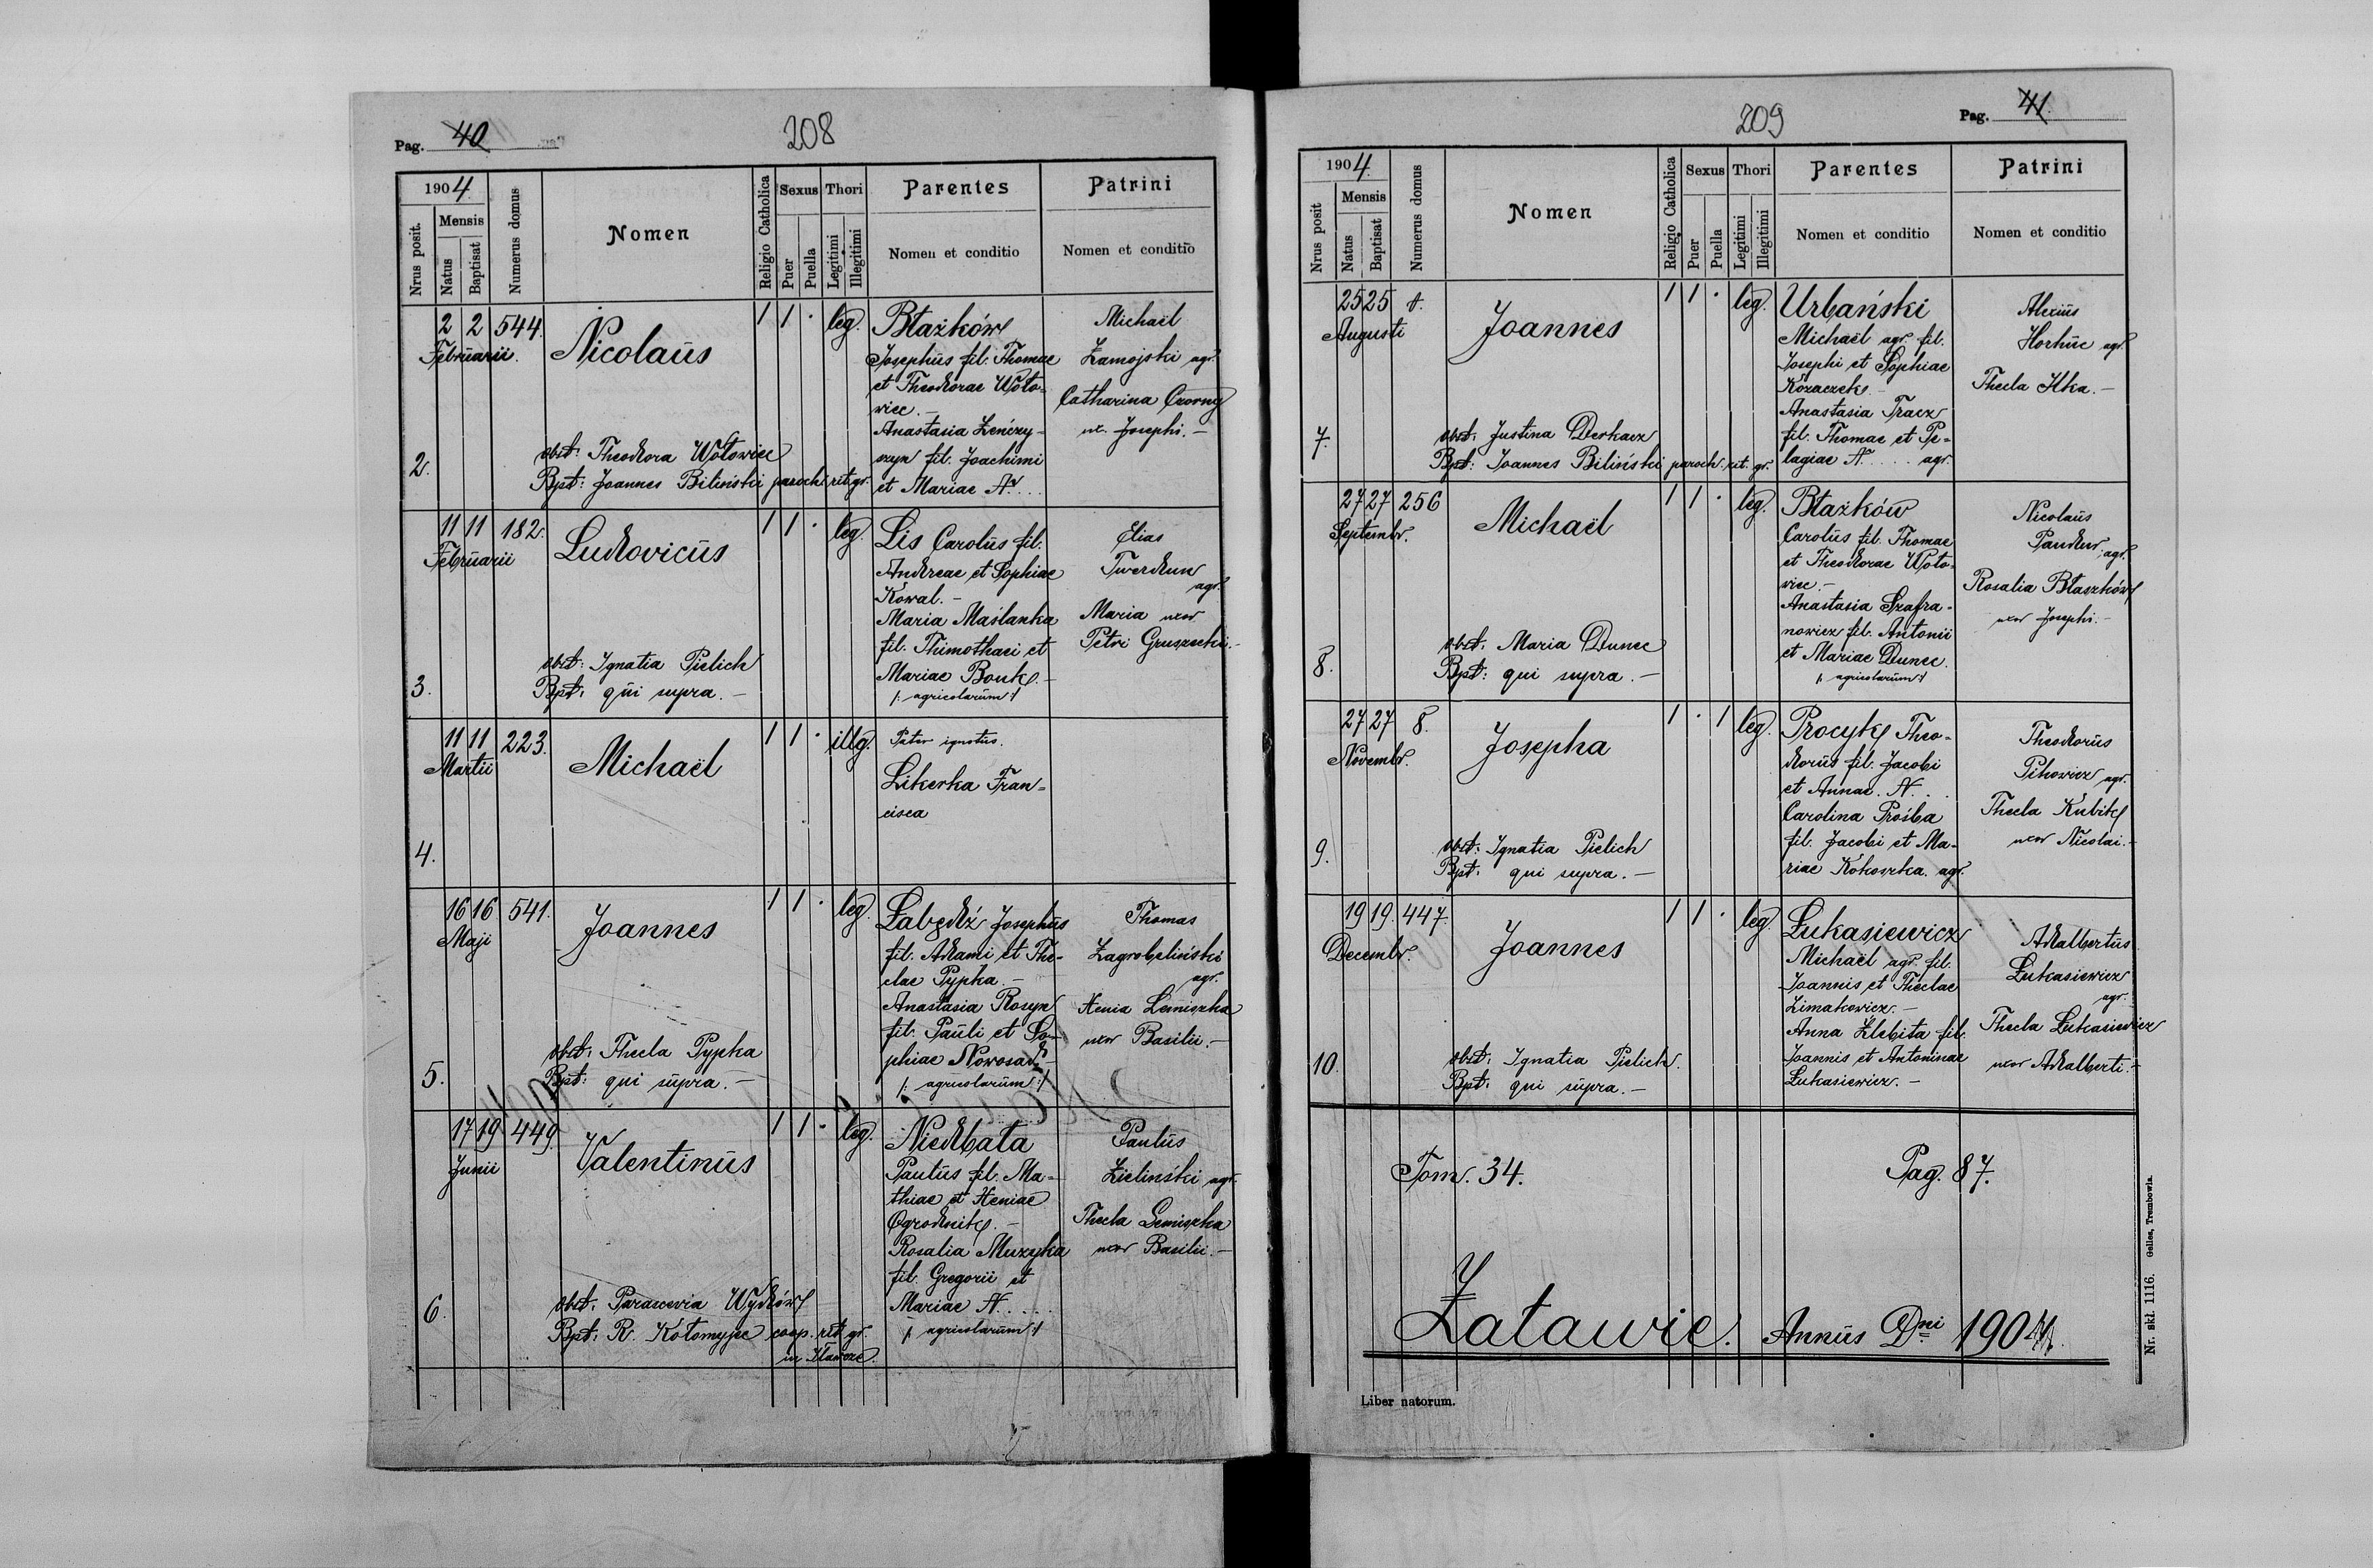 Pag. 40
208
1904.
Nrus posit.
Mensis
Natus
Baptisat
Numerus domus
Nomen
Religio Catholica
Sexus
Puer
Puella
Thori
Legitimi
Illegitimi
Parentes
Nomen et conditio
Patrini
Nomen et conditio
2.
2 2 544.
Februarii.
Nicolaus
1 1 · leg.
obst: Theodora Wołowiec
Bpt: Joannes Biliński paroch. rit. gr.
Błażków
Josephus fil. Thomae
et Theodorae Woło-
wiec. –
Anastasia
fil. Joachimi
et Mariae N. . .
Michaël
Zamojski agr.
Catharina Czorny
ux. Josephi. –
3.
11 11 182.
Februarii
Ludovicus
1 1 · leg.
obst: Ignatia Pielich
Bpt: qui supra. –
Lis Carolus fil.
Andreae et Sophiae
Kowal. –
Maria Maślanka
fil. Thimothaei et
Mariae
/: agricolarum :/
Elias
Twerdun
agr.
Maria uxor
Petri Gruszecki. –
4.
11 11 223.
Martii
Michaël
1 1 · illg.
Pater ignotus.
Likerka Fran-
cisca
5.
16 16 541.
Maji
Joannes
1 1 · leg.
obst: Thecla Pypka
Bpt: qui supra. –
Łabędź Josephus
fil. Adami et The-
clae Pypka. –
Anastasia Rosyn
fil. Pauli et So-
phiae Nowosad –
/: agricolarum :/
Thomas
Zagrobeliński
agr.
Xenia Lemiszka
uxor Basilii. –
6.
17 19 449.
Junii
Valentinus
1 1 · leg.
obst: Parascevia Wydków
Bpt: R. Kołomyjec coop. rit. gr.
in
Niedbała
Paulus fil. Ma-
thiae et Xeniae
Ogrodnik. –
Rosalia Muzyka
fil. Gregorii et
Mariae N. . . .
/: agricolarum :/
Paulus
Zieliński agr.
Thecla Lemiszka
uxor Basilii. –
209
Pag. 41.
1904.
Nrus posit
Mensis
Natus
Baptisat
Numerus domus
Nomen
Religio Catholica
Sexus
Puer
Puella
Thori
Legitimi
Illegitimi
Parentes
Nomen et conditio
Patrini
Nomen et conditio
7.
25 25
Augusti
Joannes
1 1 · leg.
obst: Justina Derkacz
Bpt: Joannes Biliński paroch. rit. gr.
Urbański
Michaël agr. fil.
Josephi et Sophiae
Kozaczek –
Anastasia Tracz
fil. Thomae et Pe-
lagiae N. . . . agr.
Alexius
agr.
Thecla Ilka. –
8.
27 27 256
Septembr.
Michaël
1 1 · leg.
obst: Maria Dunec
Bpt: qui supra. –
Błażków
Carolus fil. Thomae
et Theodorae Woło-
wiec. –
Anastasia Szafra-
nowicz fil. Antonii
et Mariae Dunec.
/: agricolarum :/
Nicolaus
agr.
Rosalia Błaszków
uxor Josephi. –
9.
27 27 8.
Novembr.
Josepha
1 · 1 leg.
obst: Ignatia Pielich
Bpt: qui supra. –
Procyk Theo-
dorus fil. Jacobi
et Annae. N. . .
Carolina Prośba
fil. Jacobi et Ma-
riae Kokoszka. agr.
Theodorus
agr.
Thecla Kubik
uxor Nicolai. –
10.
19 19. 447.
Decembr.
Joannes
1 1 · leg.
obst: Ignatia Pielich.
Bpt: qui supra. –
Łukasiewicz
Michaël agr. fil.
Joannis et Theclae
–
Anna Żlebita fil.
Joannis et Antoninae
Łukasiewicz. –
Adalbertus
Łukasiewicz
agr.
Thecla Łukasiewicz
uxor Adalberti. –
Tom. 34.
Pag. 87.
Załawie. Annus Dni 1904.
Liber natorum.
Nr. skł. 1116. Gelles, Trembowla.